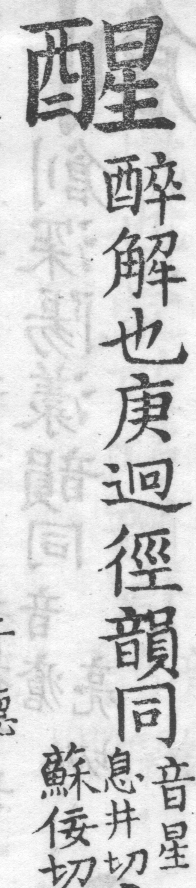 醒
醉解也庚迥徑韻同
音星
息井切
蘇佞切